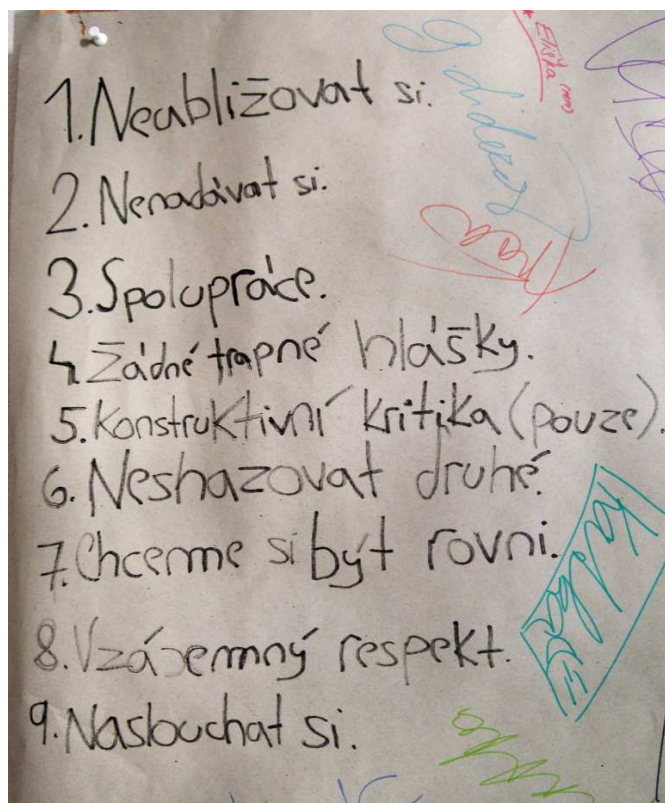 1. Neabližovat si.
2. Nenadávat si.
3. Spolupráce.
4. Žádné trapné hlášky.
5. Konstruktivní kritika (pouze).
6. Neshazovat druhé.
7. Chceme si být rovni.
8. Vzájemný respekt.
9. Naslouchat si.